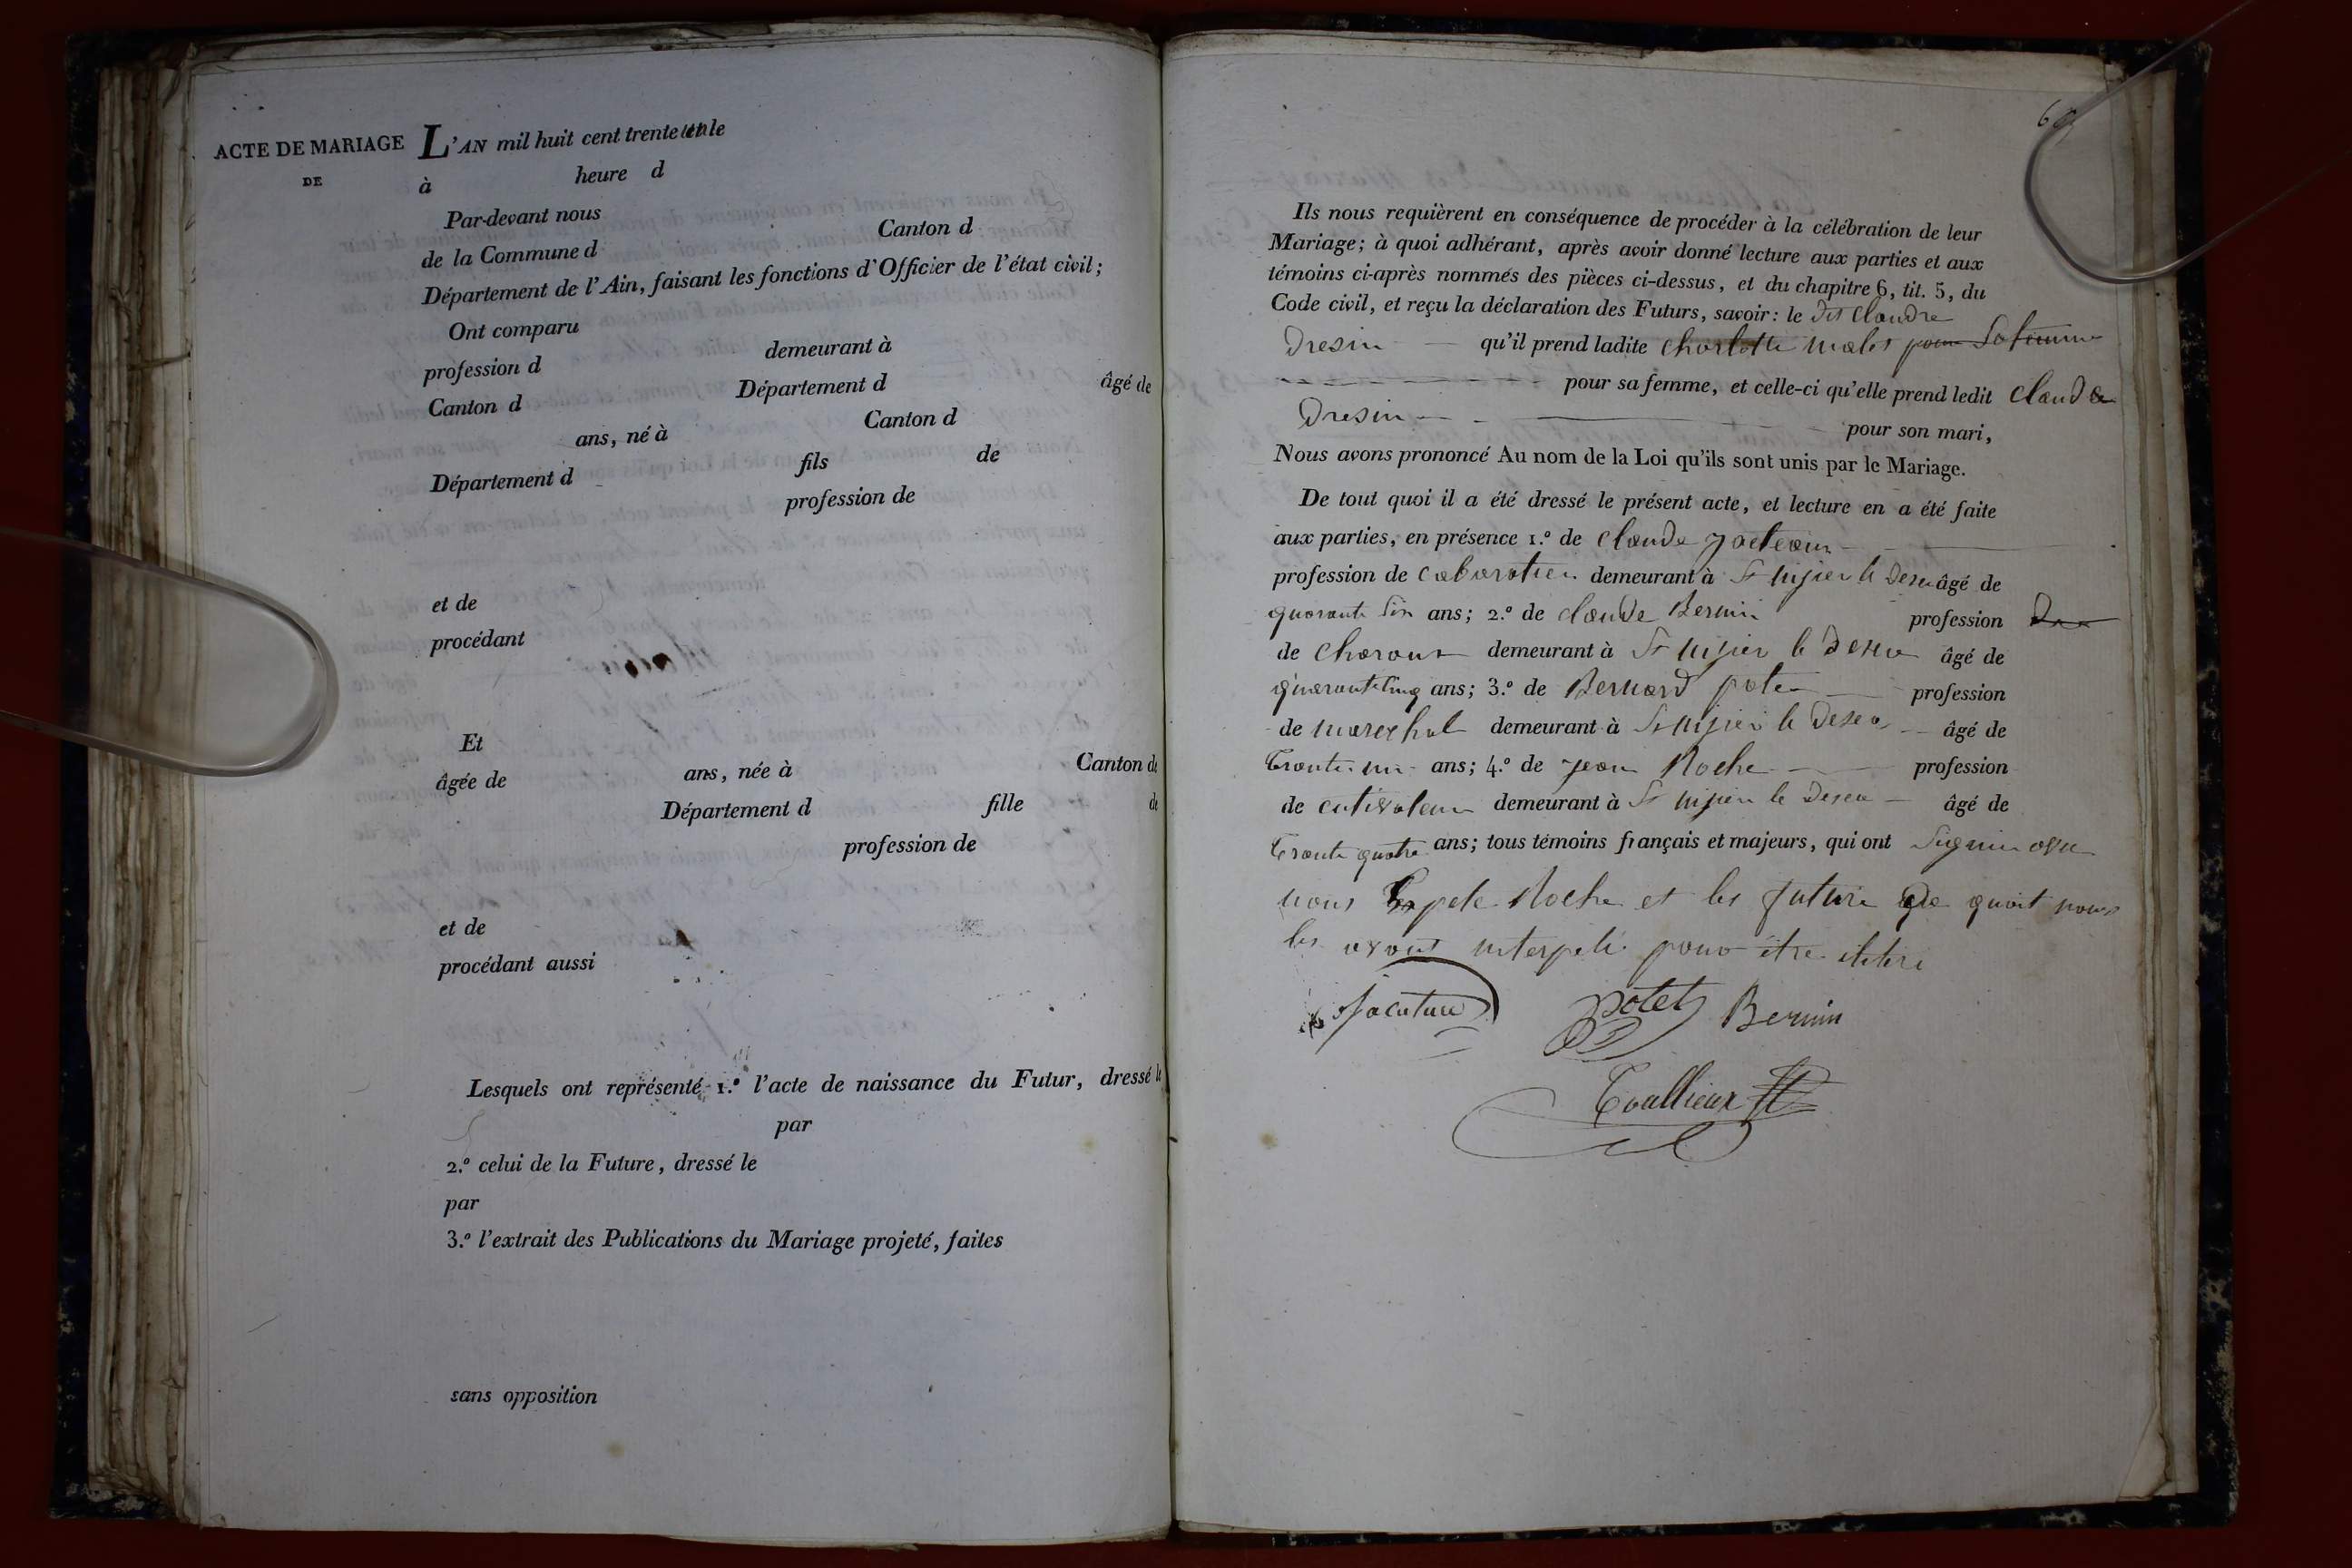 ACTE DE MARIAGE
DE
L'AN mil huit cent trente le
à heure d
Par-devant nous
de la Commune d Canton d
Département de l'Ain, faisant les fonctions d'Officier de l'état civil;
Ont comparu
profession d demeurant à
Canton d Département d âgé de
ans, né à Canton d
Département d fils de
profession de
et de
procédant
Et
âgée de ans, née à Canton de
Département d fille de
profession de
et de
procédant aussi
Lesquels ont représenté 1.º l'acte de naissance du Futur, dressé le
par
2.º celui de la Future, dressé le
par
3.º l'extrait des Publications du Mariage projeté, faites
sans opposition
Ils nous requièrent en conséquence de procéder à la célébration de leur
Mariage; à quoi adhérant, après avoir donné lecture aux parties et aux
témoins ci-après nommés des pièces ci-dessus, et du chapitre 6, tit. 5, du
Code civil, et reçu la déclaration des Futurs, savoir: le dit Claude
Dresin qu'il prend ladite charlotte males pour sa femme
pour sa femme, et celle-ci qu'elle prend ledit Claude
Dresin pour son mari,
Nous avons prononcé Au nom de la Loi qu'ils sont unis par le Mariage.
De tout quoi il a été dressé le présent acte, et lecture en a été faite
aux parties, en présence 1.º de Claude
profession de cabaratier demeurant à St nizier le Deser âgé de
quarante six ans; 2.º de Claude Bernin profession
de charon demeurant à St nizier le Deser âgé de
quarante cinq ans; 3.º de Bernard potet profession
de marechal demeurant à St nizier le Deser âgé de
trante un ans; 4.º de jean Roche profession
de cutivateur demeurant à St nizier le Deser âgé de
trante quatre ans; tous témoins français et majeurs, qui ont signé avec
nous Roche et les future de quoit nous
les avons interpelé pour être
Jacuture potet Bernin